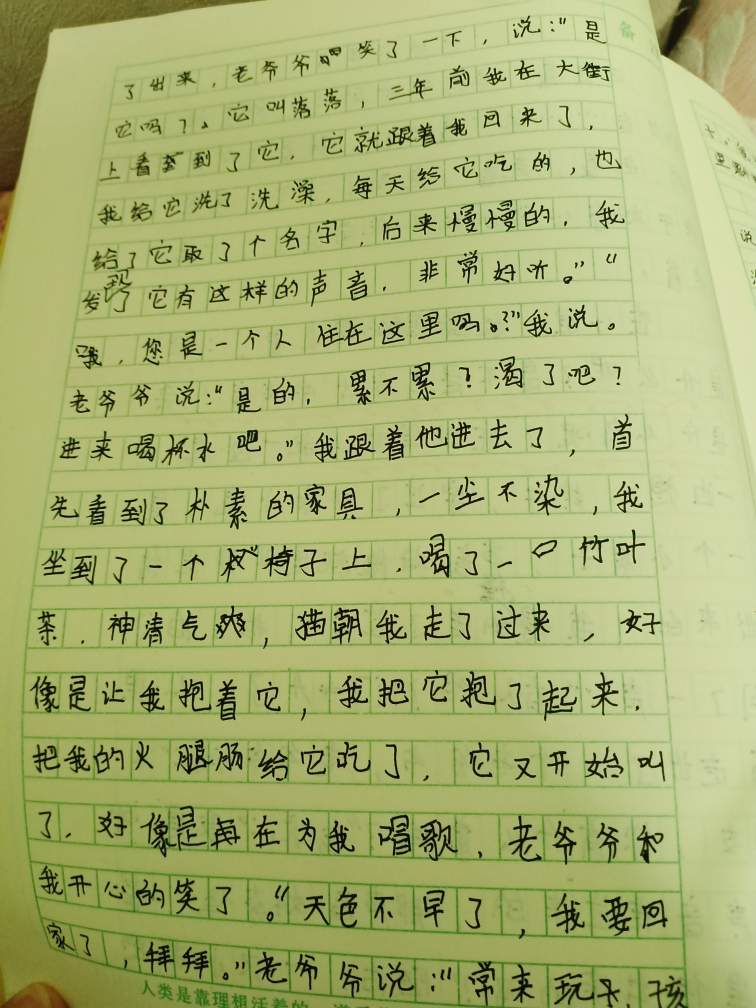 了出来，老爷爷笑了一下，说：“是
它吗？。它叫落落，三年前我在大街
上看到了它，它就跟着我回来了，
我给它洗了洗澡，每天给它吃的，也
给了它取了个名字，后来慢慢的，我
发现了它有这样的声音，非常好听。”“
哦，您是一个人住在这里吗。？”我说。
老爷爷说：“是的，累不累？渴了吧？
进来喝杯水吧。”我跟着他进去了，首
先看到了朴素的家具，一尘不染，我
坐到了一个椅子上，喝了一口竹叶
茶，神清气爽，猫朝我走了过来，好
像是让我抱着它，我把它抱了起来，
把我的火腿肠给它吃了，它又开始叫
了，好像是在为我唱歌，老爷爷和
我开心的笑了。“天色不早了，我要回
家了，拜拜。”老爷爷说：“常来玩，孩
人类是靠理想活着的